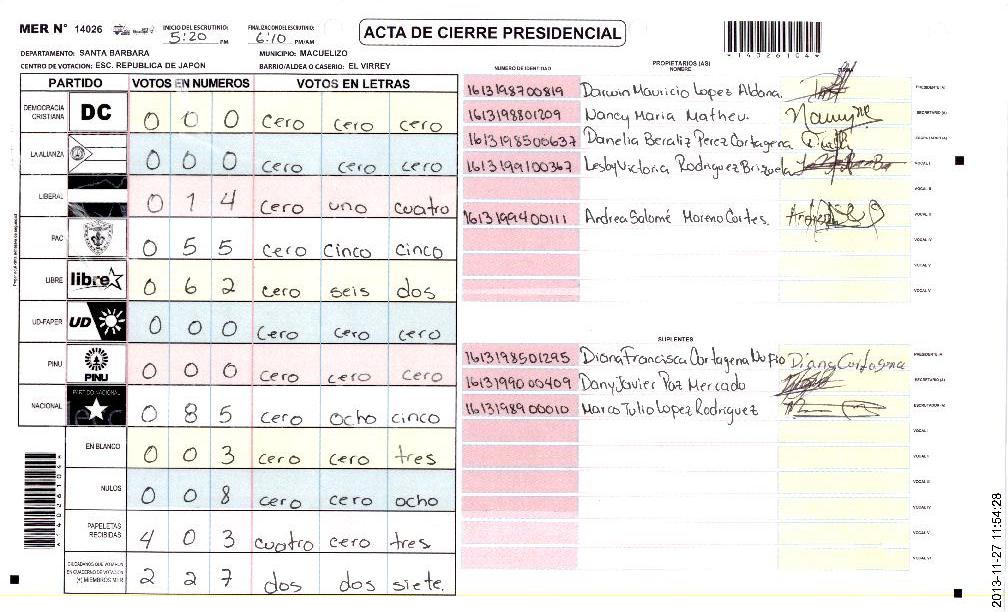 MER N° 14026 INICIO DEL ESCRUTINIO: 5:20 PM FINALIZACION DEL ESCRUTINIO: 6:10 PM/AM
ACTA DE CIERRE PRESIDENCIAL
*14026104*
DEPARTAMENTO: SANTA BARBARA MUNICIPIO: MACUELIZO
CENTRO DE VOTACION: ESC. REPUBLICA DE JAPON BARRIO/ALDEA O CASERIO: EL VIRREY
PARTIDO VOTOS EN NUMEROS VOTOS EN LETRAS
DEMOCRACIA CRISTIANA DC 0 0 0 cero cero cero
LA ALIANZA 0 0 0 cero cero cero
LIBERAL 0 1 4 cero uno cuatro
PAC 0 5 5 cero cinco cinco
LIBRE libre 0 6 2 cero seis dos
UD-FAPER UD 0 0 0 cero cero cero
PINU PINU 0 0 0 cero cero cero
NACIONAL PARTIDO NACIONAL 0 8 5 cero ocho cinco
EN BLANCO 0 0 3 cero cero tres
NULOS 0 0 8 cero cero ocho
PAPELETAS RECIBIDAS 4 0 3 cuatro cero tres
CIUDADANOS QUE VOTARON EN CUADERNO DE VOTACION (+) MIEMBROS MER 2 2 7 dos dos siete.
NUMERO DE IDENTIDAD PROPIETARIOS (AS) NOMBRE FIRMA
1613198700819 Darwin Mauricio Lopez Aldana. PRESIDENTE (A)
1613198801209 Nancy Maria Matheu. SECRETARIO (A)
1613198500637 Danelia Beraliz Perez Cartagena ESCRUTADOR (A)
1613199100367 Lesby Victoria Rodriguez Brizuela VOCAL I
VOCAL II
1613199400111 Andrea Salomé Moreno Cortes. VOCAL III
VOCAL IV
VOCAL V
SUPLENTES
1613198501295 Diana Francisca Cartagena Diana Cartagena PRESIDENTE (A)
1613199000409 Dany Javier Paz Mercado SECRETARIO (A)
1613198900010 Marco Tulio Lopez Rodriguez ESCRUTADOR (A)
VOCAL I
VOCAL II
VOCAL III
VOCAL IV
VOCAL V
VOCAL VI
2013-11-27 11:54:28